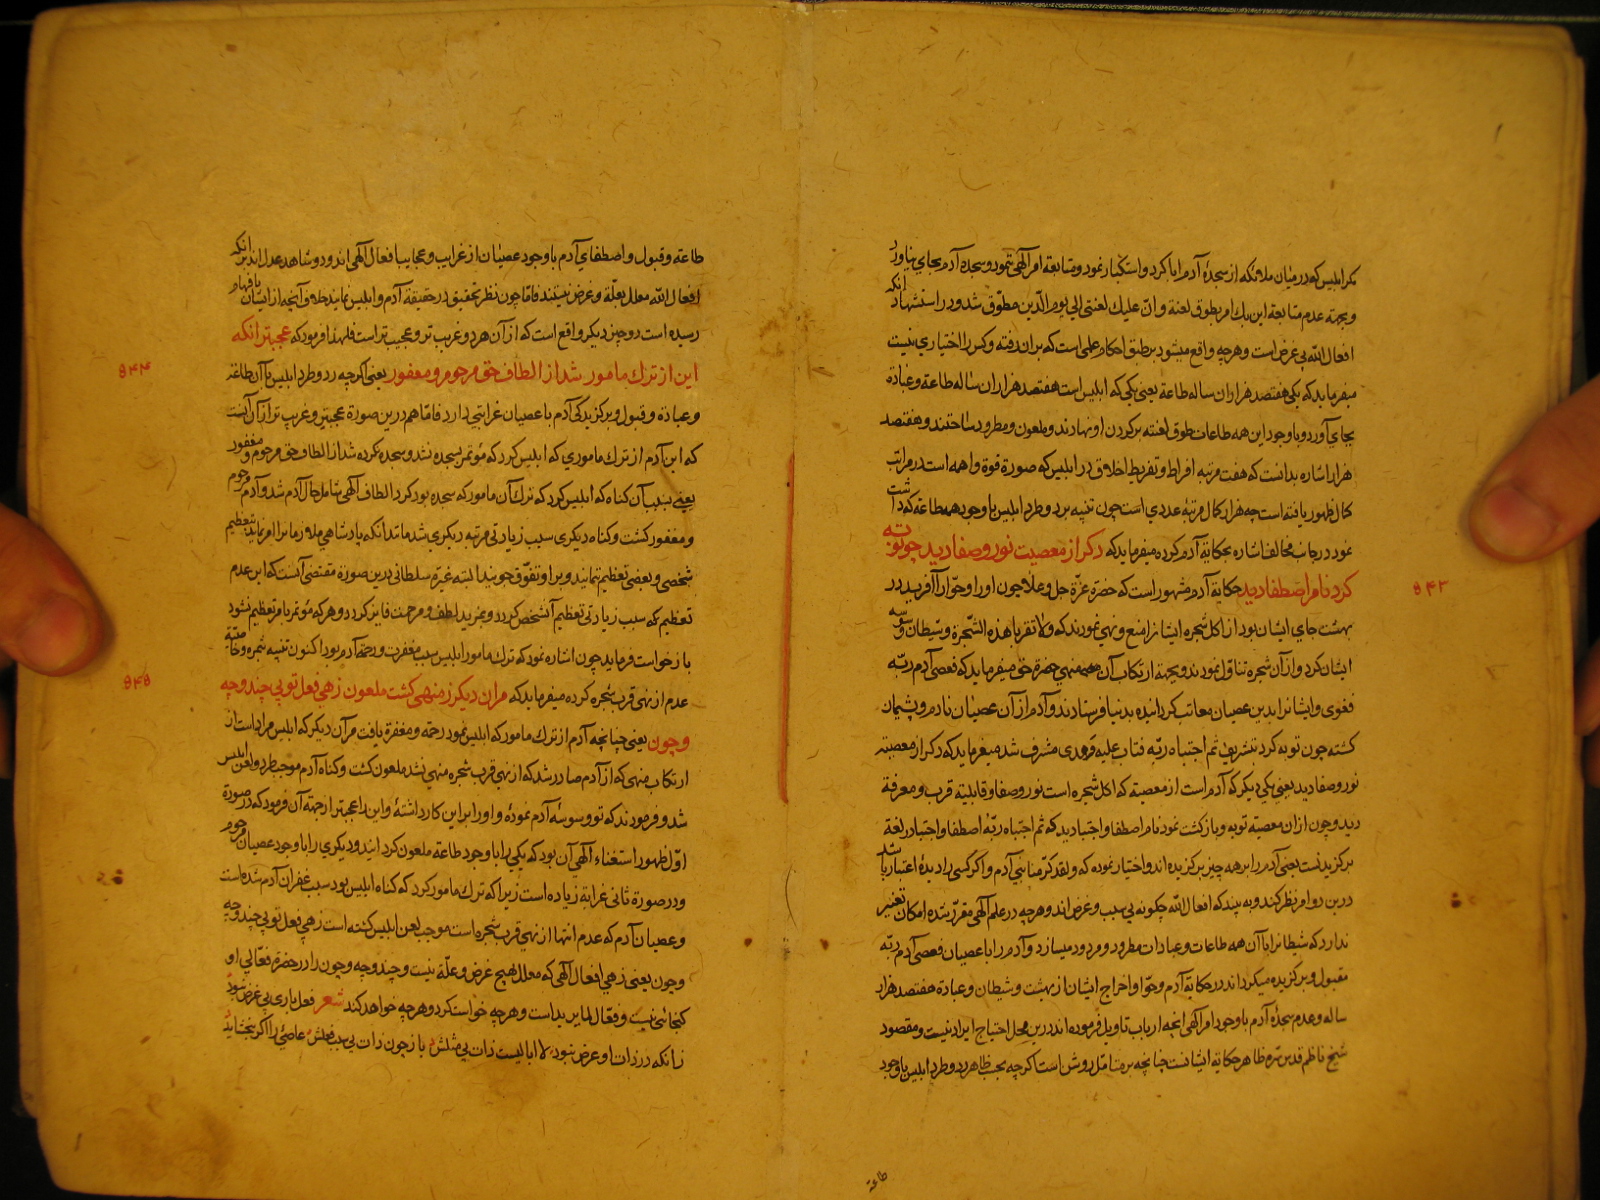 مکر ابلیس که در میان ملائکه از سجدهٔ آدم ابا کرد و استکبار نمود و متابعة امر آلهی ننمود و سجده آدم بجای نیاورد
و بجهة عدم متابعة این یک امر بطوق لعنة و انّ علیک لعنتی الی یوم الدّین مطوّق شد و در استشهاد آنکه
افعال الله بی غرض است و هرچه واقع میشود بر طبق احکام علمی است که بران رفته و کس را اختیاری نیست
میفرماید که یکی هفتصد هزاران ساله طاعة یعنی یکی که ابلیس است هفتصد هزاران ساله طاعة و عبادة
بجای آورد و با وجود این همه طاعات طوق لعنته بر کردن او نهادند و ملعون و مطرود ساختند و هفتصد
هزار اشاره بدانست که هفت مرتبه افراط و تفریط اخلاق در ابلیس که صورة قوة واهمه است در مراتب
کمال ظهور یافته است چه هزار کمال مرتبهٔ عددی است چون تنبیه بر رد و طرد ابلیس با وجود همه طاعة که داشت
نمود در جانب مخالف اشاره بحکایة آدم کرده میفرماید که دکر از معصیت نور و صفا دید چو توبه
کرد نام اصطفا دید حکایة آدم مشهور است که حضرة عزّة جل و علا چون او را و حوّا را آفرید در
۵۴۳
بهشت جای ایشان بود از اکل شجره ایشانرا منع و نهی نمودند که ولا تقربا هذه الشّجرة و شیطان وسوسه
ایشان کرد و از آن شجره تناول نمودند و بجهة ارتکاب آن منهی حضرة حق میفرماید که فعصی آدم ربّه
فغوی و ایشانرا بدین عصیان معاتب کردانیده بدنیا فرستادند و آدم از آن عصیان نادم و پشیمان
کشته چون توبه کرد بتشریف ثم اجتباه ربّه فتاب علیه و هدی مشرف شد میفرماید که دکر از معصیة
نور و صفا دید یعنی یکی دیکر که آدم است از معصیة که اکل شجره است نور و صفا و قابلیة قرب و معرفة
دید و چون از ان معصیة توبه و بازکشت نمود نام اصطفا و اجتبا دید که ثم اجتباه ربّه اصطفا و اجتبا در لغة
برکزیدنست یعنی آدم را بر همه چیز برکزیده اند و اختیار نموده که و لقد کرّمنا بنی آدم و اکر کسی را دیدهٔ اعتبار باشد
درین دو امر نظر کند و به بیند که افعال الله چکونه بی سبب و غرض اند و هرچه در علم آلهی مقرّر شده امکان تغییر
ندارد که شیطانرا با آن همه طاعات و عبادات مطرود و مردود میسازد و آدم را با عصیان فعصی آدم ربّه
مقبول و برکزیده میکرداند در حکایة آدم و حوّا و اخراج ایشان از بهشت و شیطان و عبادة هفتصد هزار
ساله و عدم سجدهٔ آدم با وجود امر آلهی آنچه ارباب تاویل فرموده اند درین محل احتیاج ایراد نیست و مقصود
شیخ ناظم قدس سره ظاهر حکایة ایشانست چنانچه بر متامّل روشن است اکرچه بحسب ظاهر رد و طرد ابلیس با وجود
طاعة
طاعة و قبول و اصطفای آدم با وجود عصیان از غرایب و عجایب افعال آلهی اند و دو شاهد عدل اند بر آنکه
افعال الله معلل بعلّة و غرض نیستند فامّا چون نظر تحقیق در حقیقة آدم و ابلیس نمایند خلاف آنچه از ایشان بافهام
رسیده است دو چیز دیکر واقع است که از آن هر دو غریب تر و عجیب تر است فلهذا فرمود که عجبتر آنکه
این از ترك مامور شد از الطاف حق مرحوم و مغفور یعنی اکرچه رد و طرد ابلیس با آن طاعة
۵۴۴
و عبادة و قبول و برکزیدکی آدم با عصیان غرابتی دارد فامّا هم درین صورة عجبتر و غریب تر از آن آنست
که این آدم از ترك ماموری که ابلیس کرد که مؤتمر بسجده نشد و سجده نکرده شد از الطاف حق مرحوم و مغفور
یعنی بسبب آن کناه که ابلیس کرد که ترك آن مامور که سجده بود کرد الطاف آلهی شامل حال آدم شد و آدم مرحوم
و مغفور کشت و کناه دیکری سبب زیادتی مرتبه دیکری شد مانند آنکه پادشاهی ملازمانرا امر نماید بتعظیم
شخصی و بعضی تعظیم ننمایند و بر او تفوّق جویند البته غیرة سلطانی درین صورة مقتضی آنست که این عدم
تعظیم که سبب زیادتی تعظیم آنشخص کردد و بمزید لطف و مرحمت فایز کردد و هر که مؤتمر بامر تعظیم نشود
بازخواست فرماید چون اشاره نمود که ترك مامور ابلیس سبب مغفرت و رحمة آدم بود اکنون تنبیه شجره و حکایة
عدم از نهی قرب شجره کرده میفرماید که مر آن دیکر ز منهی کشت ملعون زهی فعل تو بی چند و چه
۵۴۵
و چون یعنی چنانچه آدم از ترك مامور که ابلیس نمود رحمة و مغفرة یافت مر آن دیکر که ابلیس مراد است از
ارتکاب منهی که از آدم صادر شد که از نهی قرب شجره منهی نشد ملعون کشت و کناه آدم موجب طرد و لعن ابلیس
شد و فرمودند که تو وسوسهٔ آدم نمودهٔ و او را بر این کار داشتهٔ و این را عجبتر از جهة آن فرمود که در صورة
اوّل ظهور استغناء آلهی آن بود که یکی را با وجود طاعة ملعون کردانید و دیکری را با وجود عصیان مرحوم
و در صورة ثانی غرابة زیاده است زیرا که ترك مامور کردن که کناه ابلیس بود سبب غفران آدم شده است
و عصیان آدم که عدم انتها از نهی قرب شجره است موجب لعن ابلیس کشته است زهی فعل تو بی چند و چه
و چون یعنی زهی افعال آلهی که معلل بهیچ غرض و علّة نیست و چند و چه و چون را در حضرة فعّالی او
کنجائی نیست و فعّال لما یرید است و هرچه خواست کرد و هرچه خواهد کند شعر فعل باری بی غرض بود
زانکه در ذات او عرض نبود لا ابالیست ذات بی مثلش باز چون ذات بی سبب فعلش عاصئی را اکر ببخشاید